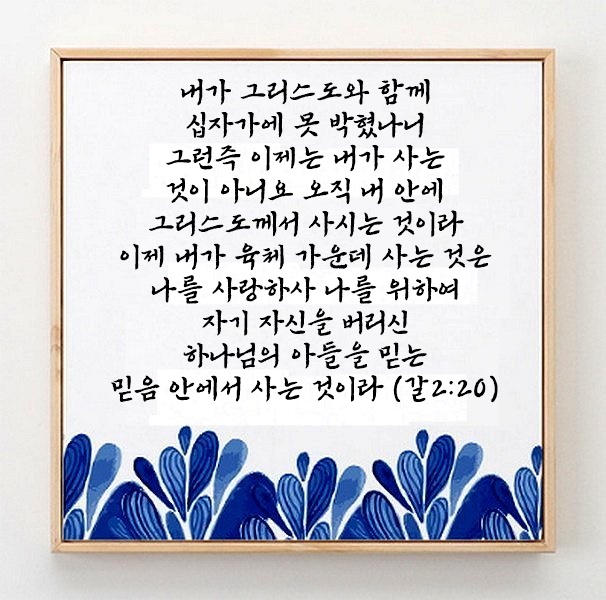 내가 그리스도와 함께
십자가에 못 박혔나니
그런즉 이제는 내가 사는
것이 아니요 오직 내 안에
그리스도께서 사시는 것이라
이제 내가 육체 가운데 사는 것은
나를 사랑하사 나를 위하여
자기 자신을 버리신
하나님의 아들을 믿는
믿음 안에서 사는 것이라 (갈2:20)